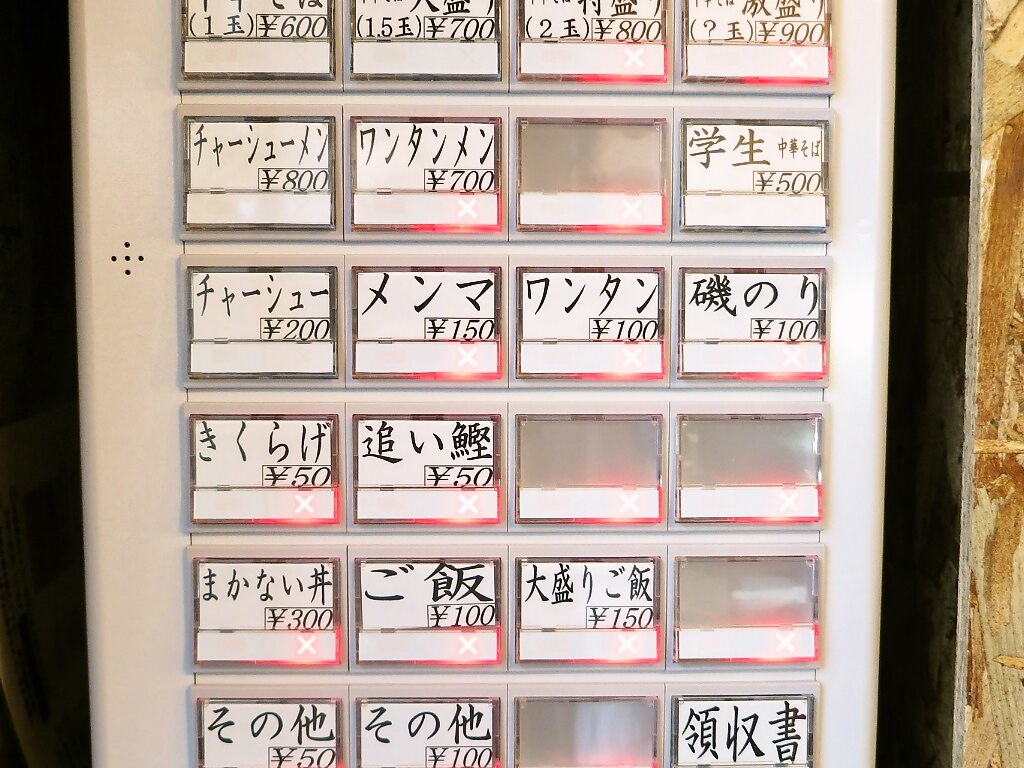 (1玉)¥600
(1.5玉)¥700
(2玉)¥800
(?玉)¥900
チャーシューメン
¥800
ワンタンメン
¥700
学生 中華そば
¥500
チャーシュー
¥200
メンマ
¥150
ワンタン
¥100
磯のり
¥100
きくらげ
¥50
追い鰹
¥50
まかない丼
¥300
ご飯
¥100
大盛りご飯
¥150
その他
¥50
その他
¥100
領収書